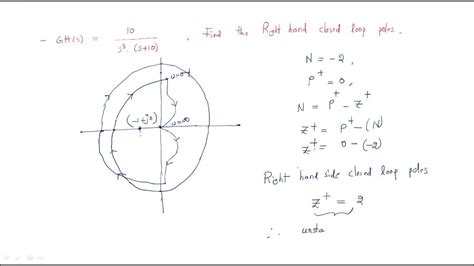 - GH(s) = 10 / s³. (s+10) , Find the Right hand closed loop poles.
N = -2,
P⁺ = 0,
N = P⁺ - Z⁺
Z⁺ = P⁺ - (N)
Z⁺ = 0 - (-2)
(-1+j0)
ω=∞
Right hand side closed loop poles
Z⁺ = 2
∴ unsta